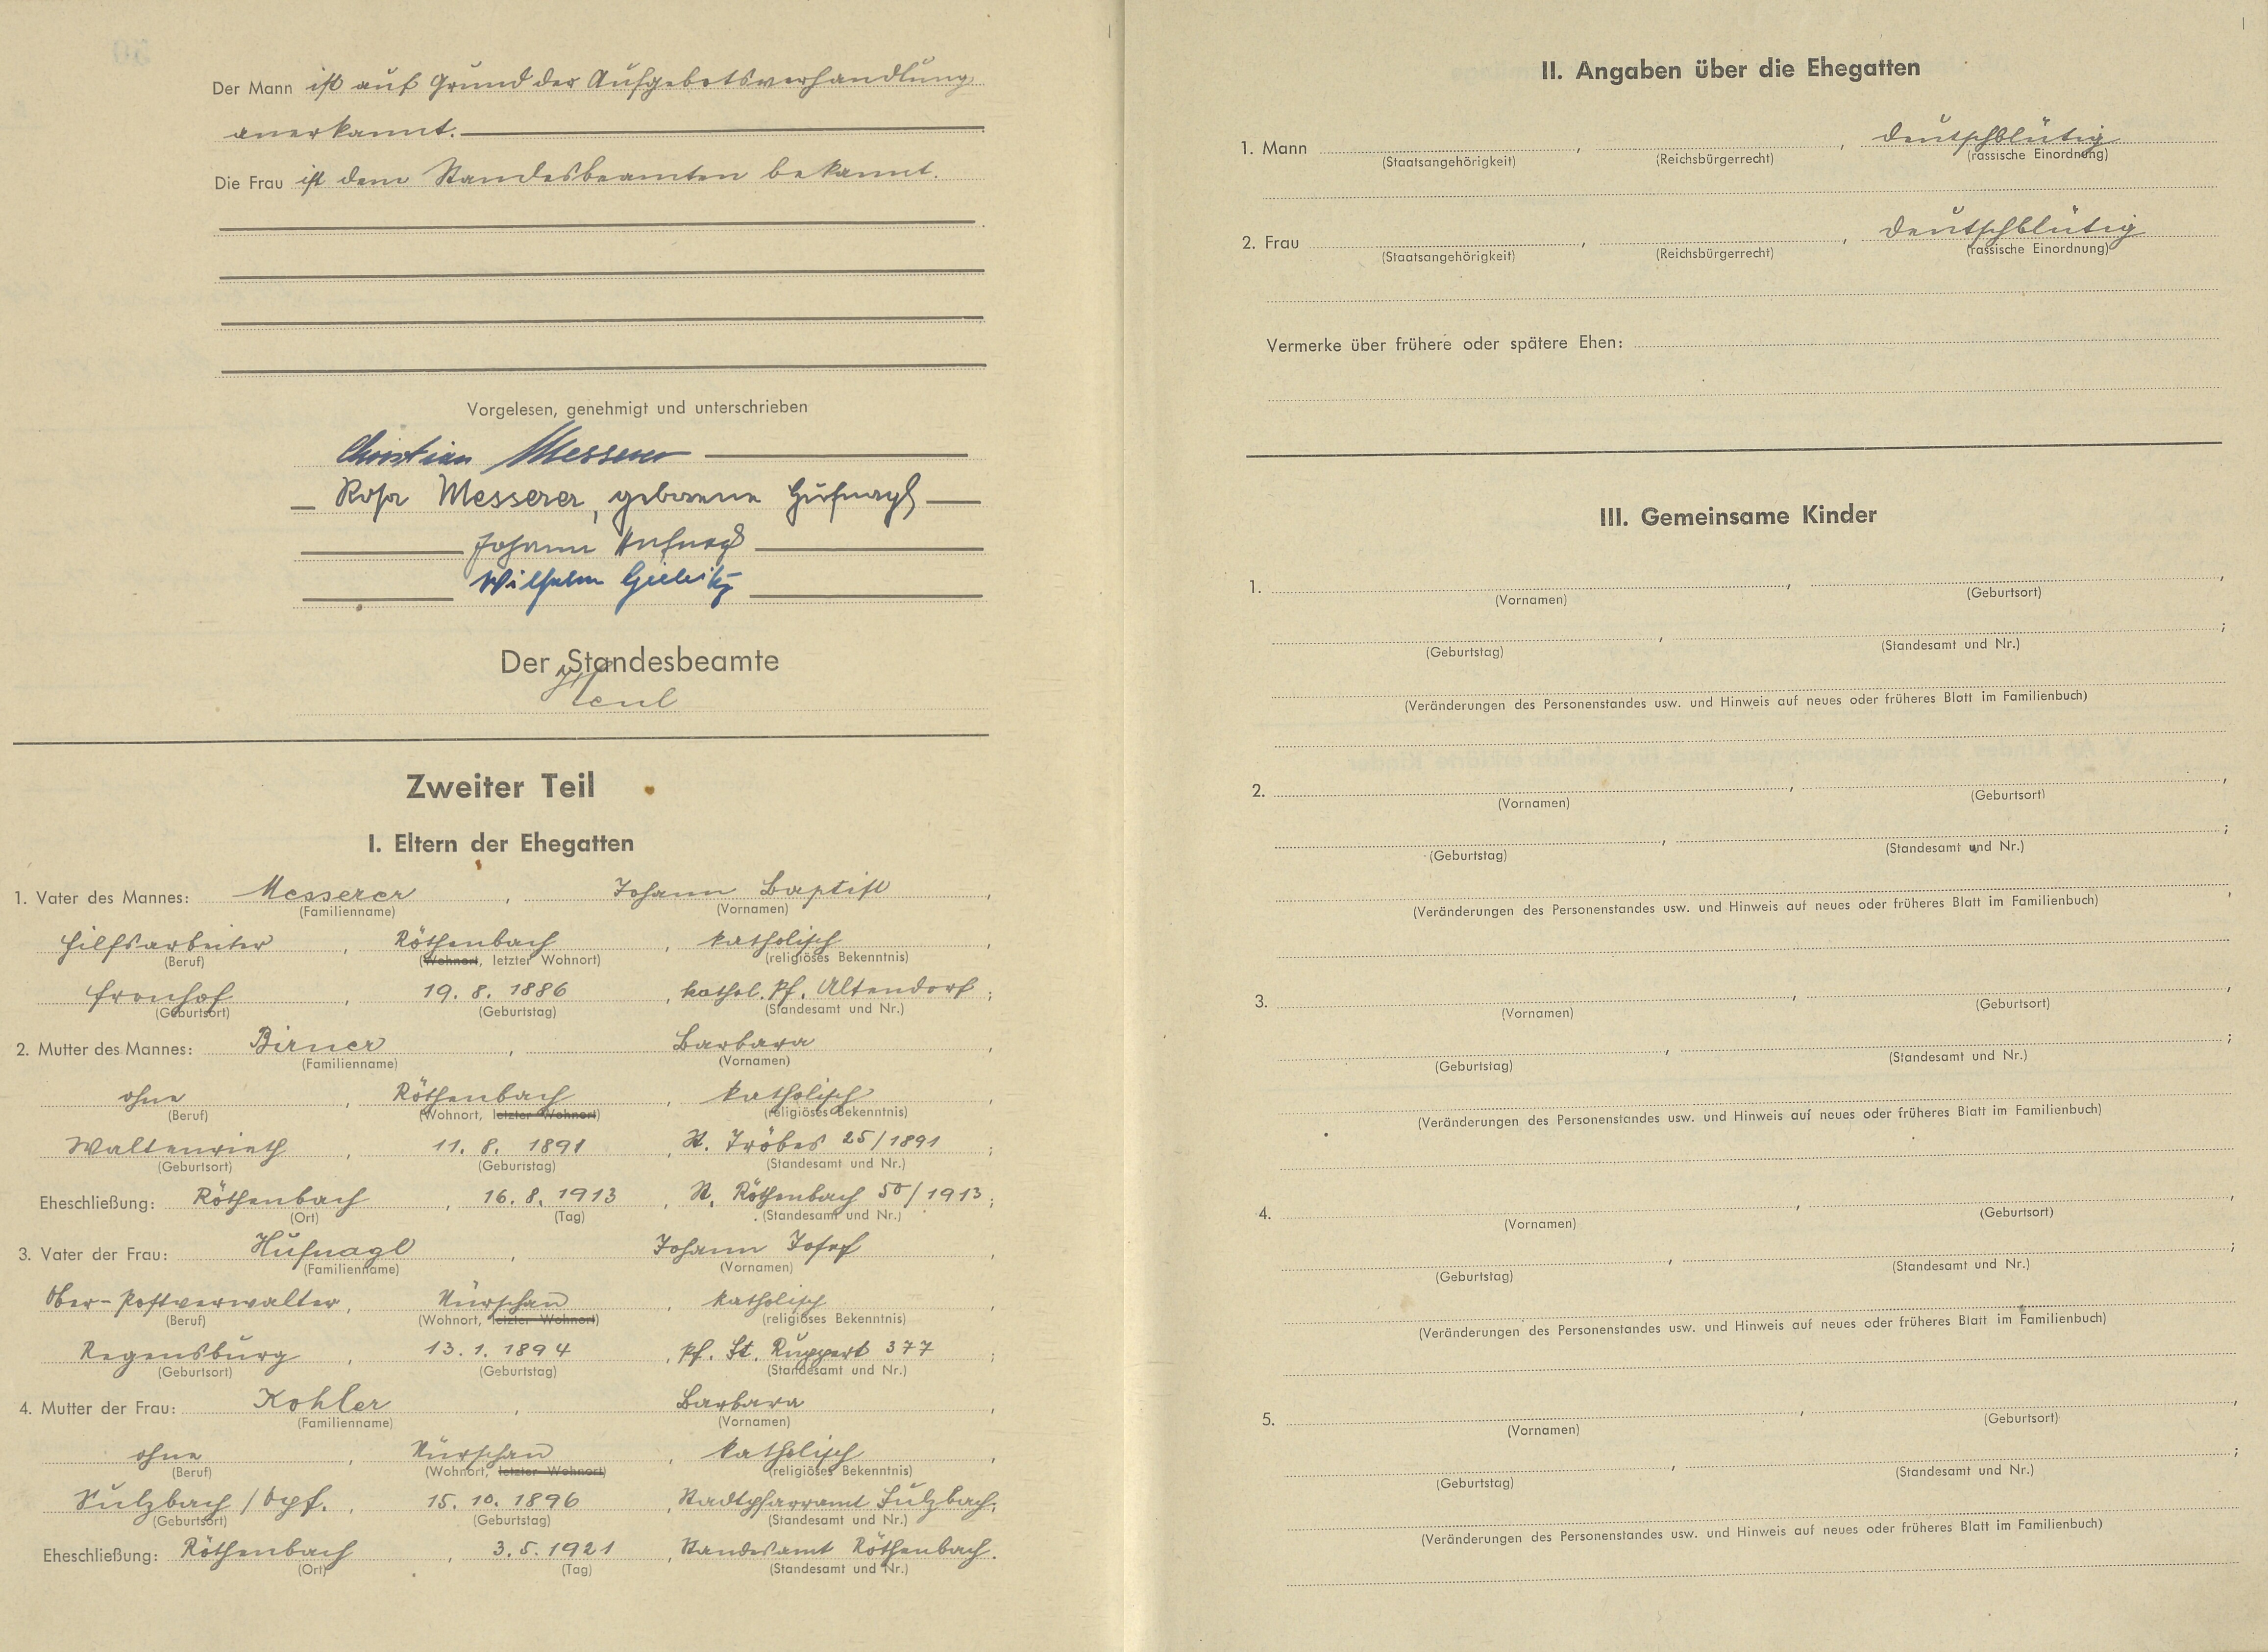 Der Mann ist auf Grund der Aufgebotsverhandlung
anerkannt.
Die Frau ist dem Standesbeamten bekannt.
Vorgelesen, genehmigt und unterschrieben
Christian Messerer
Rosa Messerer, geborene Hufnagl
Johann Hufnagl
Wilhelm
Der Standesbeamte
Zweiter Teil
I. Eltern der Ehegatten
1. Vater des Mannes: Messerer, Johann Baptist,
(Familienname) (Vornamen)
Hilfsarbeiter, Röthenbach, katholisch,
(Beruf) (Wohnort, letzter Wohnort) (religiöses Bekenntnis)
Fronhof, 19. 8. 1886, kathol. Pf. Altendorf;
(Geburtsort) (Geburtstag) (Standesamt und Nr.)
2. Mutter des Mannes: Birner, Barbara,
(Familienname) (Vornamen)
ohne, Röthenbach, katholisch,
(Beruf) (Wohnort, letzter Wohnort) (religiöses Bekenntnis)
Waltenrieth, 11. 8. 1891, St. Tröbes 25/1891;
(Geburtsort) (Geburtstag) (Standesamt und Nr.)
Eheschließung: Röthenbach, 16. 8. 1913, St. Röthenbach 50/1913;
(Ort) (Tag) (Standesamt und Nr.)
3. Vater der Frau: Hufnagl, Johann Josef,
(Familienname) (Vornamen)
Ober-Postverwalter, Nürschan, katholisch,
(Beruf) (Wohnort, letzter Wohnort) (religiöses Bekenntnis)
Regensburg, 13. 1. 1894, Pf. St. Ruppert 377;
(Geburtsort) (Geburtstag) (Standesamt und Nr.)
4. Mutter der Frau: Kohler, Barbara,
(Familienname) (Vornamen)
ohne, Nürschan, katholisch,
(Beruf) (Wohnort, letzter Wohnort) (religiöses Bekenntnis)
Sulzbach / Opf., 15. 10. 1896, Stadtpfarramt Sulzbach;
(Geburtsort) (Geburtstag) (Standesamt und Nr.)
Eheschließung: Röthenbach, 3. 5. 1921, Standesamt Röthenbach.
(Ort) (Tag) (Standesamt und Nr.)
II. Angaben über die Ehegatten
1. Mann , , deutschblütig
(Staatsangehörigkeit) (Reichsbürgerrecht) (rassische Einordnung)
2. Frau , , deutschblütig
(Staatsangehörigkeit) (Reichsbürgerrecht) (rassische Einordnung)
Vermerke über frühere oder spätere Ehen:
III. Gemeinsame Kinder
1. , ,
(Vornamen) (Geburtsort)
, ;
(Geburtstag) (Standesamt und Nr.)
(Veränderungen des Personenstandes usw. und Hinweis auf neues oder früheres Blatt im Familienbuch)
2. , ,
(Vornamen) (Geburtsort)
, ;
(Geburtstag) (Standesamt und Nr.)
(Veränderungen des Personenstandes usw. und Hinweis auf neues oder früheres Blatt im Familienbuch)
3. , ,
(Vornamen) (Geburtsort)
, ;
(Geburtstag) (Standesamt und Nr.)
(Veränderungen des Personenstandes usw. und Hinweis auf neues oder früheres Blatt im Familienbuch)
4. , ,
(Vornamen) (Geburtsort)
, ;
(Geburtstag) (Standesamt und Nr.)
(Veränderungen des Personenstandes usw. und Hinweis auf neues oder früheres Blatt im Familienbuch)
5. , ,
(Vornamen) (Geburtsort)
, ;
(Geburtstag) (Standesamt und Nr.)
(Veränderungen des Personenstandes usw. und Hinweis auf neues oder früheres Blatt im Familienbuch)